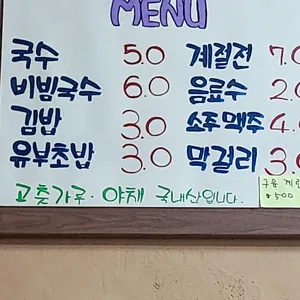 MENU
국수 5.0 계절전 7.0
비빔국수 6.0 음료수 2.0
김밥 3.0 소주맥주 4.
유부초밥 3.0 막걸리 3.
고춧가루·야채 국내산입니다.
구운 계란
500